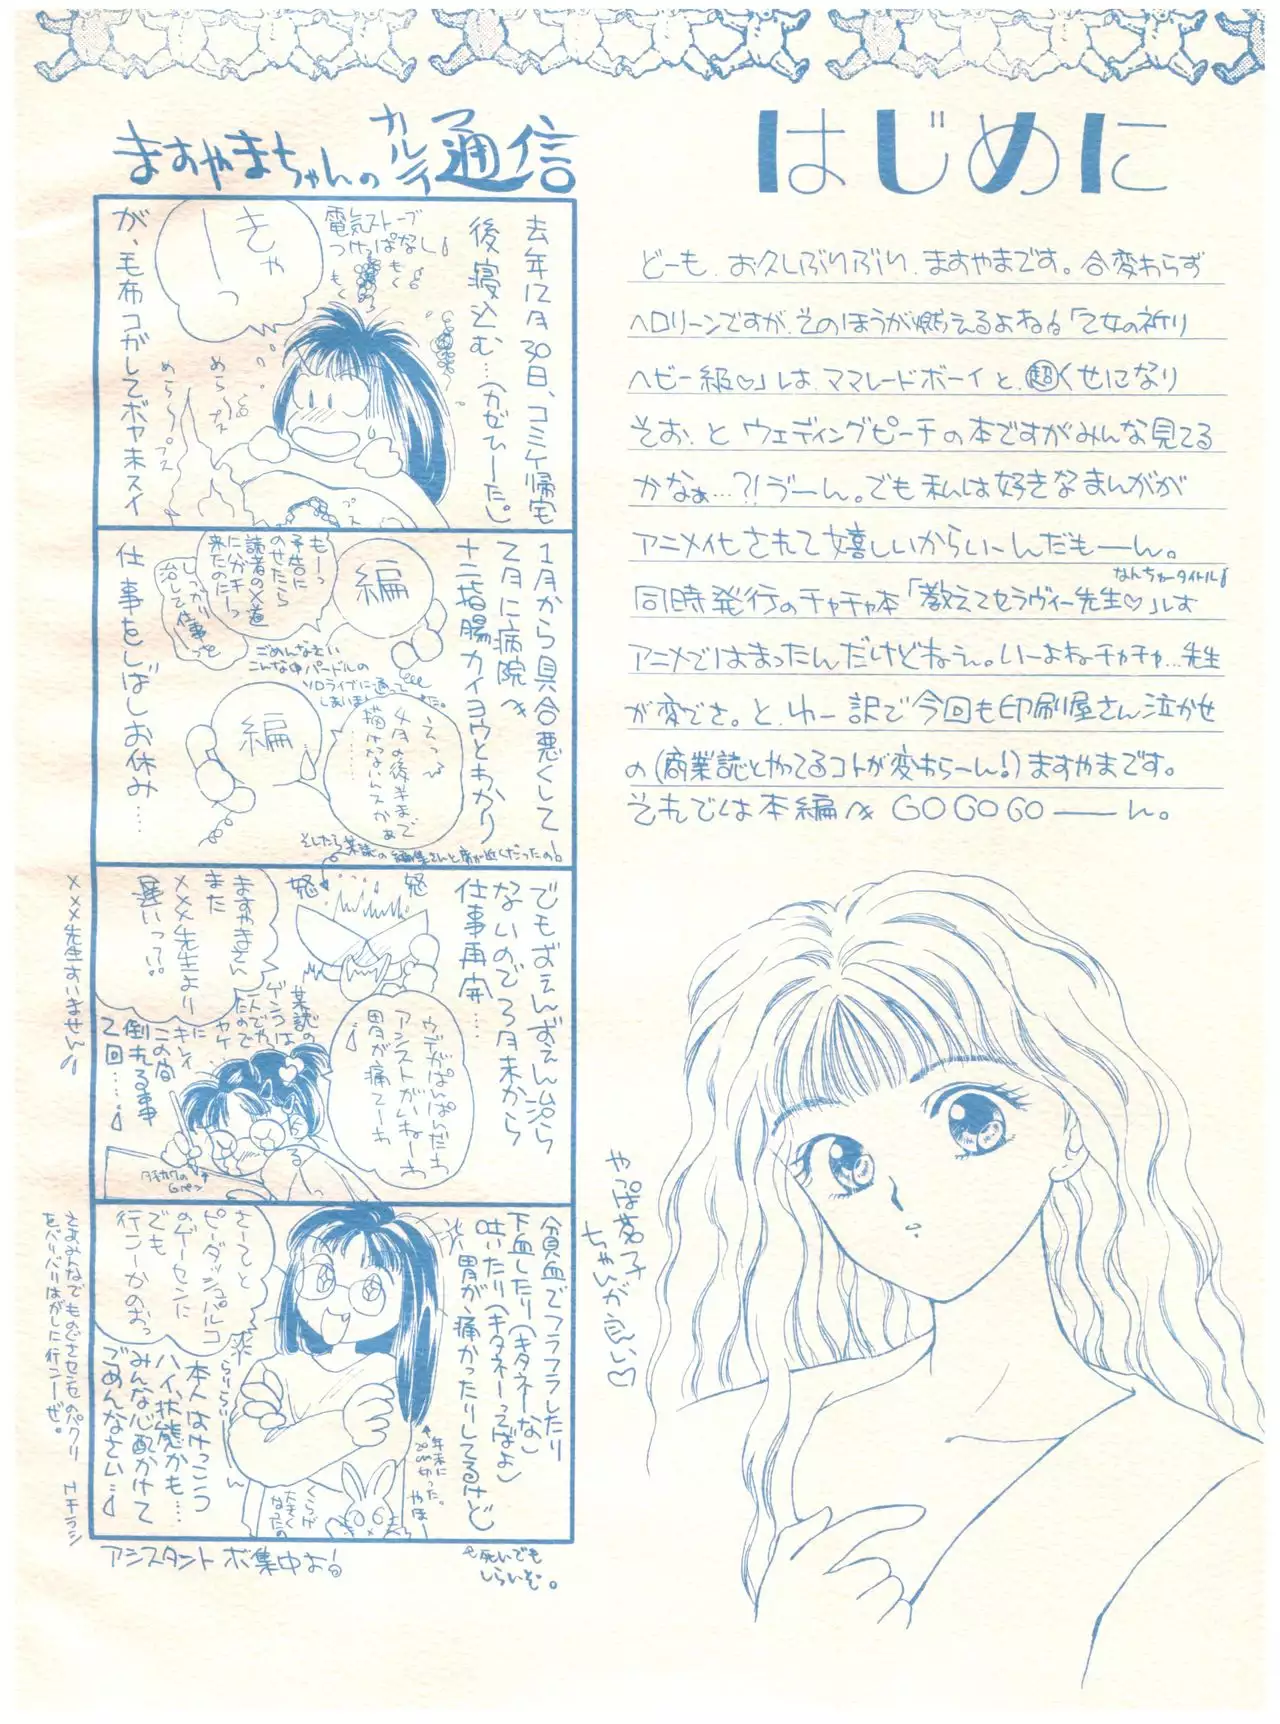 はじめに
どーも、お久しぶりぶり、ますやまです。合変わらず
ヘロリーンですが、そのほうが燃えるよね♪「乙女の祈り
ヘビー級♡」しは、ママレードボーイと、超くせになり
そお、と ウェディングピーチの本ですがみんな見てる
かなぁ…?!ゔーん。でも私は好きなまんがが
アニメイヒされて嬉しいからいーんだもーん。
なんちゅータイトル
同時発行のチャチャ本「教えてセラヴィー先生♡」しす
アニメではまったんだけどねぇ。いーよねチャチャ…先生
が変でさ。と、ゆー訳で今回も印刷屋さん泣かせ
の(商業誌とやってるコトが変わらーん!)ますやまです。
それでは本編へ GOGOGO――ん。
やっぱ蛍子
ちゃんが良い♡
ますやまちゃんのカルテ通信
去年12月30日、コミケ帰宅
後寝込む…(かぜひーた。)
電気ストーブ
つけっぱなし
もく
もく
きゃーっ
めら
めら
ブス
ブス
が、毛布コがしてボヤ未スイ
1月から具合悪くして
2月に病院へ
十二指腸カイヨウとわかり
編
もーっ
予告に
のせたら
読者のメ道
に分キーっ
来たのに
しっかり
治して仕事
ごめんなさい
こんな中バードルの
ソロライブに通って
しまいました。
編
えっ
4月の後半まで
描けないんスかぁ
……
仕事をしばしお休み……
そしたら某誌の編集さんと席が近くだったの
でもぜぇんぜぇん治ら
ないので3月末から
仕事再開……
怒
怒
ますやまさん
また
×××先生より
遅いって!?
ウデがぱんぱんだわ
アシストがいねーわ
胃が痛てーわ
某誌の
ゲンコーは
一人でや
たので
カケ…
にキレイ
この間
倒れる事
2回……
Gペン
×××先生すいません
貧血でフラフラしたり
下血したり(キタネーな)
吐いたり(キタネーってばよ)
胃が痛かったりしてるけど
さーてと
ピーダッシュパルコ
のゲーセンに
でも
行こーかのおっ
らりらりーん
本人はけっこう
ハイ状態かも…
みんな心配かけて
ごめんなさい…
年末に
20cm切った。
やほー
くらげ
大きく
なったの
さぁみんなで ものぐさセンセのパクリ Hチラシ
をバリバリはがしに行こーぜ。
アシスタント ボ集中よ
死いでも
しらいぞ。